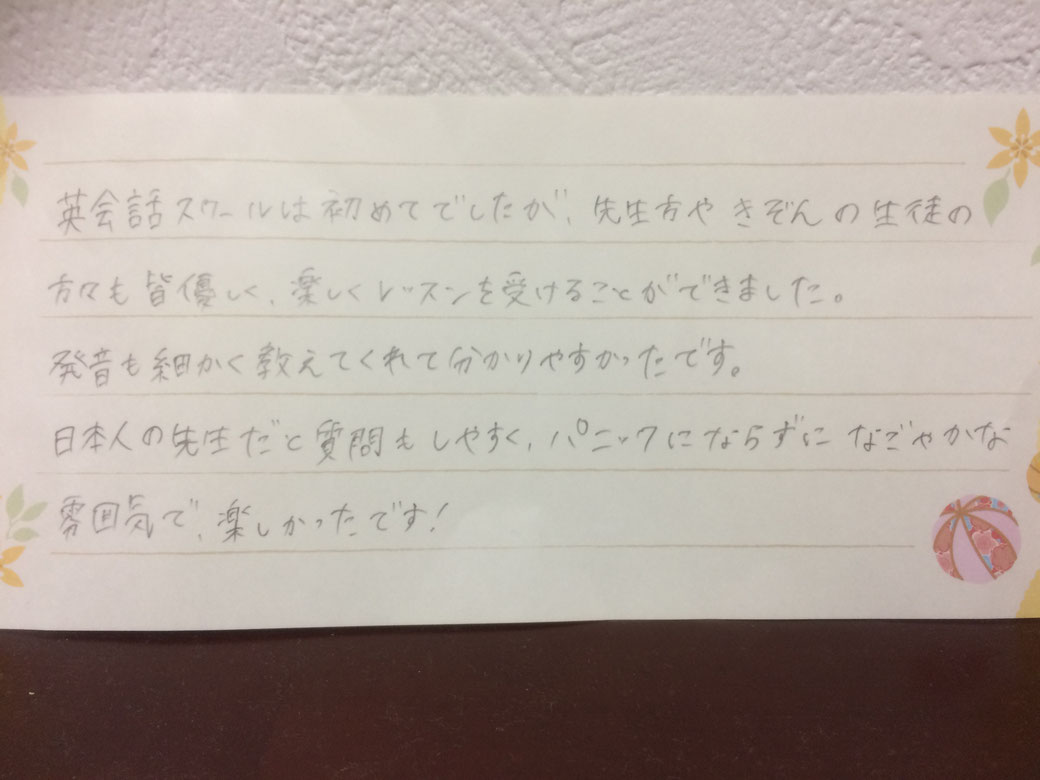 英会話スクールは初めてでしたが、先生方やきぞんの生徒の
方々も皆優しく、楽しくレッスンを受けることができました。
発音も細かく教えてくれて分かりやすかったです。
日本人の先生だと質問もしやすく、パニックにならずになごやかな
雰囲気で、楽しかったです!